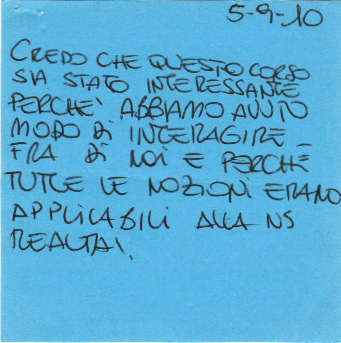 5-9-10
CREDO CHE QUESTO CORSO
SIA STATO INTERESSANTE
PERCHE' ABBIAMO AVUTO
MODO DI INTERAGIRE
FRA DI NOI E PERCHÉ
TUTTE LE NOZIONI ERANO
APPLICABILI ALLA NS
REALTA'.